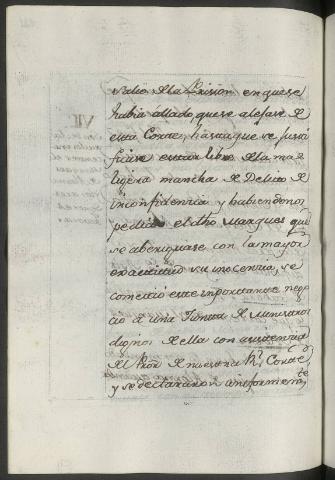 salio de la Prision en que se
habia allado, que se alejase de
esta Corte, hasta que se justi
ficase estar libre de la mas
ligera mancha de Delito de
inconfidencia y habiendonos
pedido el dho Marques que
se aberiguase con la mayor
exactitud su inocencia, se
cometió este importante nego
cio a una Junta de Ministros
dignos de ella con asistencia
del Pror de nuestra Rl Corona
y se declararon uniformemte